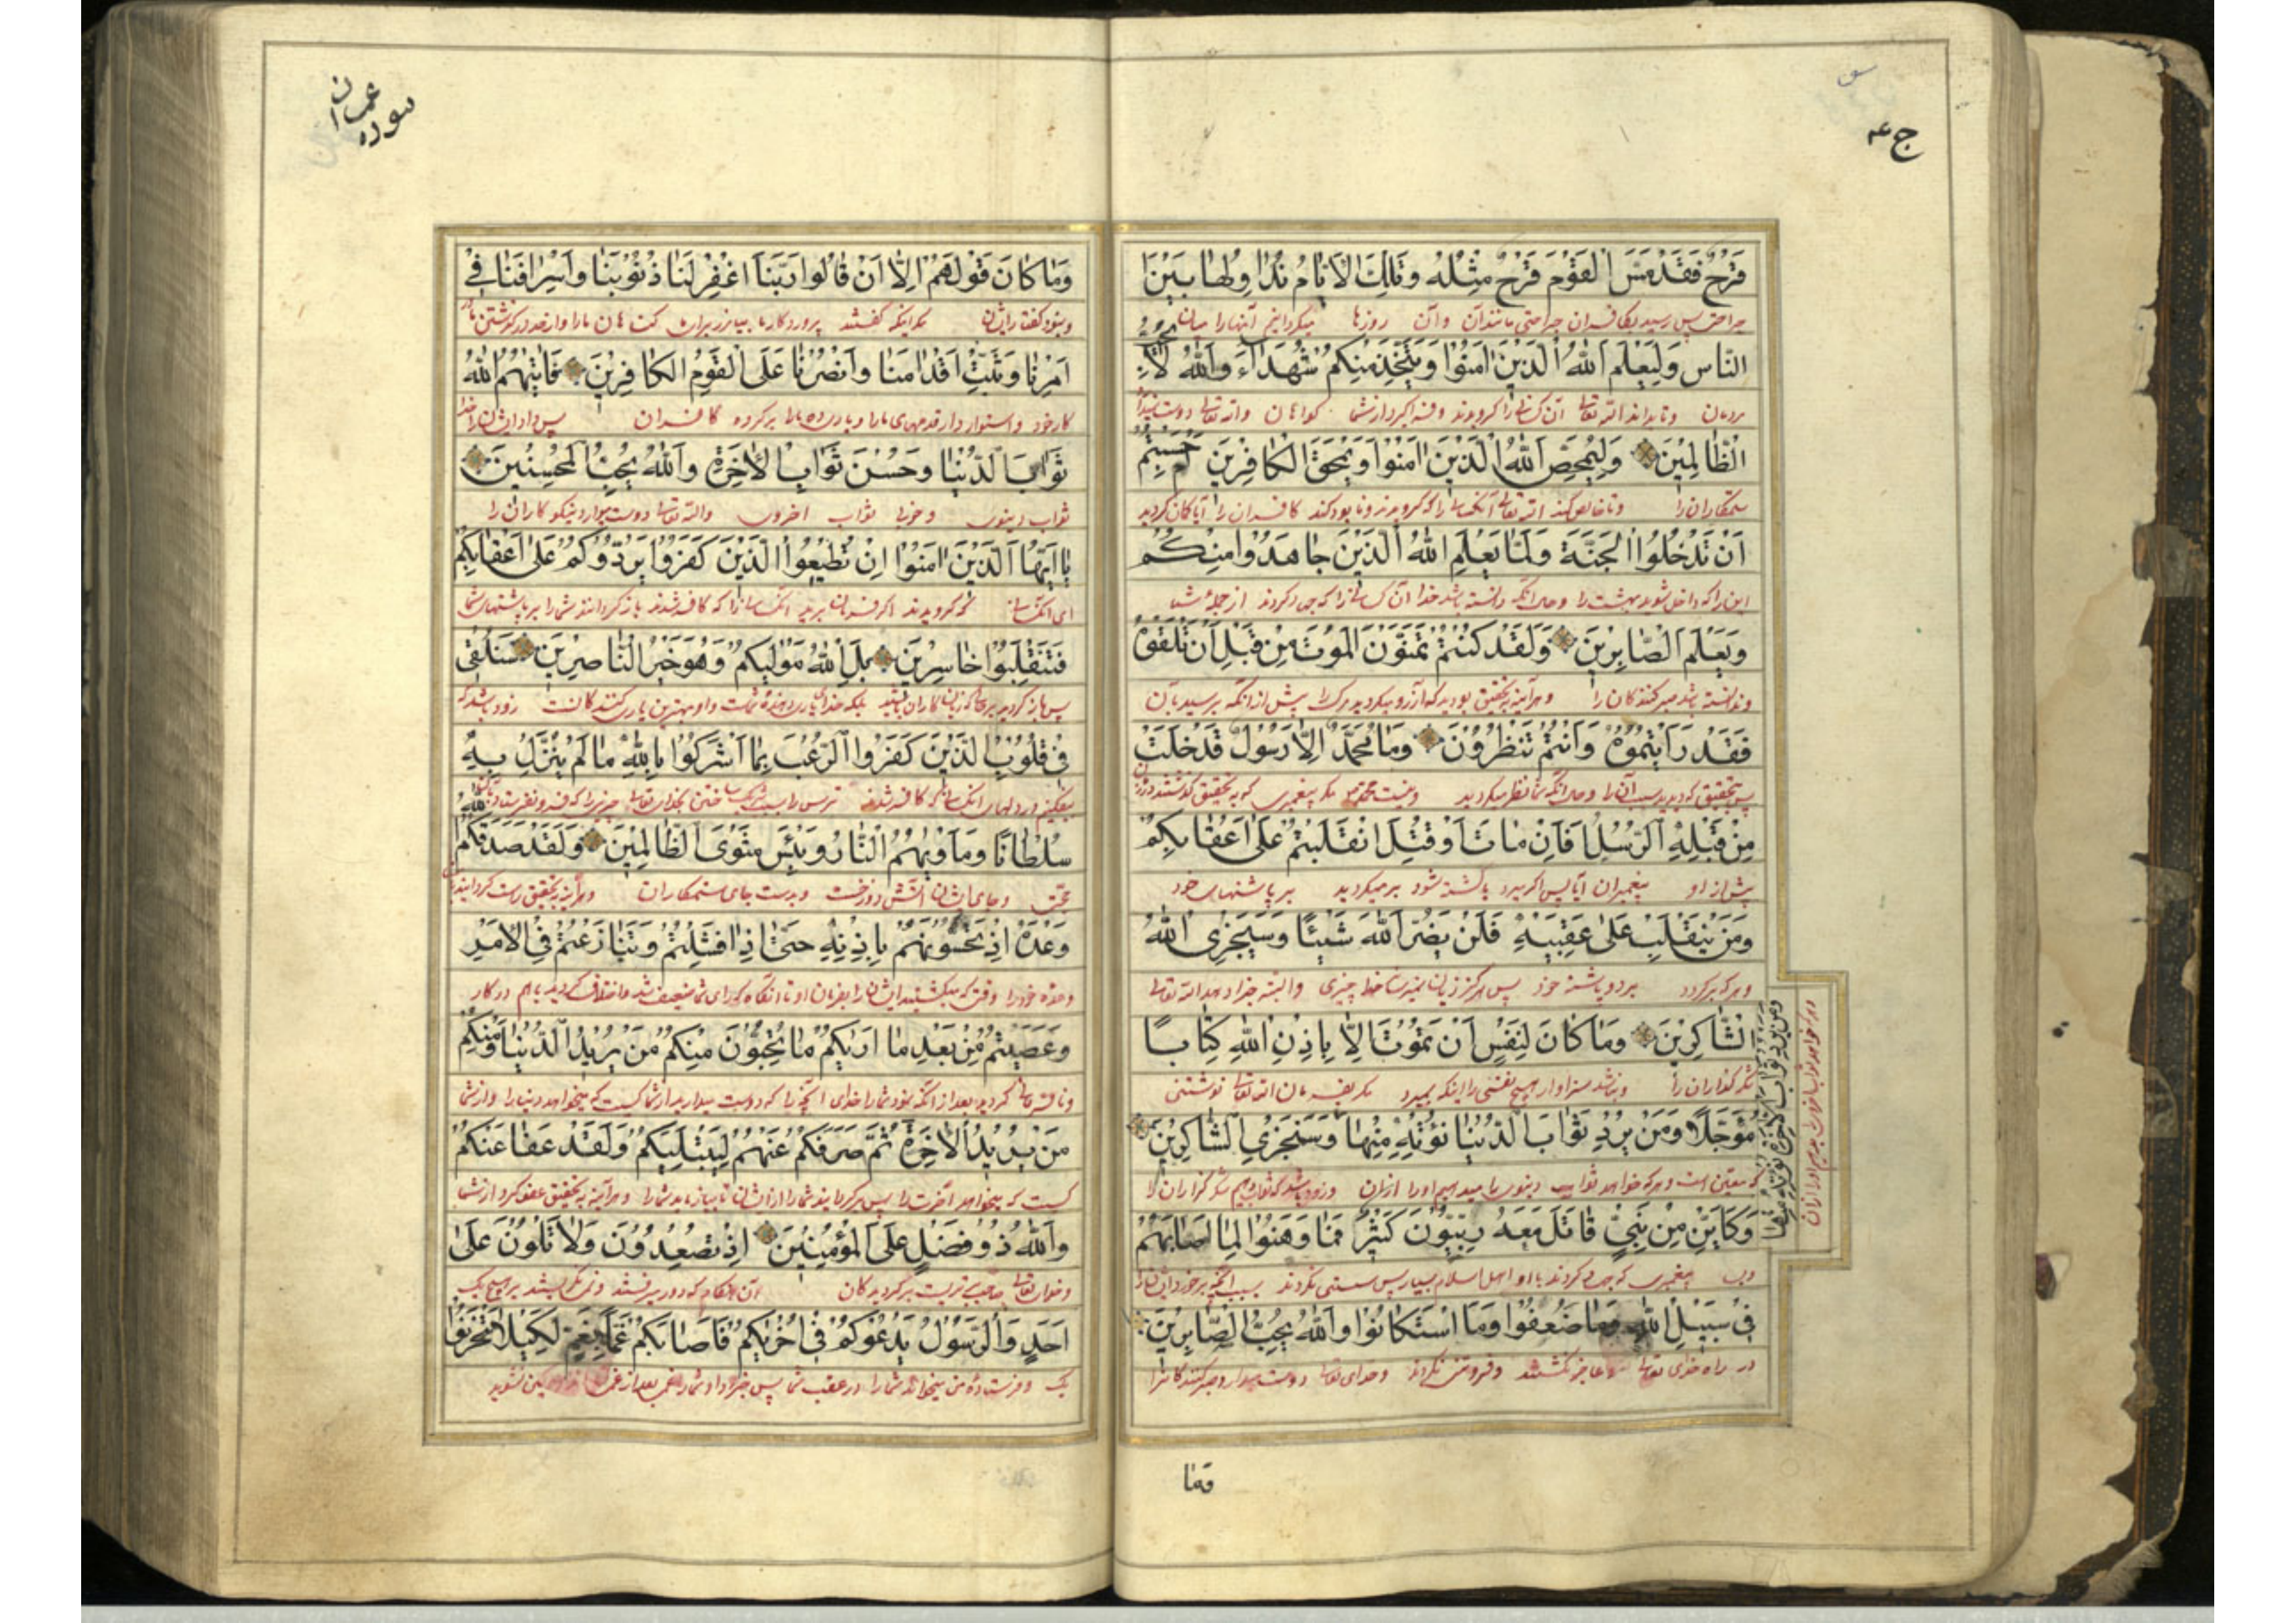 ج ع۴
قَرْحٌ فَقَدْ مَسَّ الْقَوْمَ قَرْحٌ مِثْلُهُ وَتِلْكَ الْاَيَّامُ نُدَاوِلُهَا بَيْنَ
جراحتی پس رسید کافران جراحتی مانند آن و آن روزها میگردانیم آنها را میان
النَّاسِ وَلِيَعْلَمَ اللّٰهُ الَّذِيْنَ اٰمَنُوْا وَيَتَّخِذَ مِنْكُمْ شُهَدَاءَ وَاللّٰهُ لَا يُحِبُّ
مردمان و تا بداند الله تعالی آن کسانی را گرویدند و فراگیرد از شما گواهان و الله تعالی دوست
الظَّالِمِيْنَ وَلِيُمَحِّصَ اللّٰهُ الَّذِيْنَ اٰمَنُوْا وَيَمْحَقَ الْكَافِرِيْنَ اَمْ حَسِبْتُمْ
ستمکاران را و تا خالص کند الله تعالی آنکسانی را که گرویدند و نابود کند کافران را آیا گمان کردید
اَنْ تَدْخُلُوا الْجَنَّةَ وَلَمَّا يَعْلَمِ اللّٰهُ الَّذِيْنَ جَاهَدُوْا مِنْكُمْ
این را که داخل شوید بهشت را و حال آنکه دانسته باشد خدا آن کسانرا که جهاد کردند از جملهٔ شما
وَيَعْلَمَ الصَّابِرِيْنَ وَلَقَدْ كُنْتُمْ تَمَنَّوْنَ الْمَوْتَ مِنْ قَبْلِ اَنْ تَلْقَوْهُ
و ندانسته باشد صبر کنندگان را و هرآینه بتحقیق بودید که آرزو میکردید مرگ را پیش از آنکه برسید بآن
فَقَدْ رَاَيْتُمُوْهُ وَاَنْتُمْ تَنْظُرُوْنَ وَمَا مُحَمَّدٌ اِلَّا رَسُوْلٌ قَدْ خَلَتْ
پس بتحقیق که دیدید سبب آن را و حال آنکه شما نظر میکردید و نیست محمد مگر پیغمبری که بتحقیق گذشتند
مِنْ قَبْلِهِ الرُّسُلُ اَفَاِنْ مَاتَ اَوْ قُتِلَ انْقَلَبْتُمْ عَلٰى اَعْقَابِكُمْ
پیش از او پیغمبران آیا پس اگر بمیرد یا کشته شود برمیگردید بر پاشنهای خود
وَمَنْ يَنْقَلِبْ عَلٰى عَقِبَيْهِ فَلَنْ يَضُرَّ اللّٰهَ شَيْئًا وَسَيَجْزِى اللّٰهُ
و هر که برگردد بر دو پاشنه خود پس هرگز زیان نمیرساند خدا را چیزی و البته جزا دهد الله تعالی
الشَّاكِرِيْنَ وَمَا كَانَ لِنَفْسٍ اَنْ تَمُوْتَ اِلَّا بِاِذْنِ اللّٰهِ كِتَابًا
شکرگذاران را و نباشد سزاوار هیچ نفسی را اینکه بمیرد مگر بفرمان الله تعالی نوشتنی
مُؤَجَّلًا وَمَنْ يُرِدْ ثَوَابَ الدُّنْيَا نُؤْتِهِ مِنْهَا وَسَنَجْزِى الشَّاكِرِيْنَ
که معین است و هر که خواهد ثواب دینوی را میدهیم او را از آن و زود باشد که ثواب دهیم شکرگزاران را
وَكَاَيِّنْ مِنْ نَبِيٍّ قَاتَلَ مَعَهُ رِبِّيُّوْنَ كَثِيْرٌ فَمَا وَهَنُوْا لِمَا اَصَابَهُمْ
و بسا پیغمبری که جهاد کردند با او اهل اسلام بسیار پس سستی نکردند بسبب آنچه برخورد
فِىْ سَبِيْلِ اللّٰهِ وَمَا ضَعُفُوْا وَمَا اسْتَكَانُوْا وَاللّٰهُ يُحِبُّ الصَّابِرِيْنَ
در راه خدای تعالی عاجز نگشتند و فروتنی نکردند و خدای تعالی دوست میدارد صبر کنندگانرا
وَمَنْ يُرِدْ ثَوَابَ الْاٰخِرَةِ نُؤْتِهِ مِنْهَا
و هر که خواهد ثواب آخرت را بدهیم او را از آن
وما
سوره عمران
وَمَا كَانَ قَوْلَهُمْ اِلَّا اَنْ قَالُوْا رَبَّنَا اغْفِرْ لَنَا ذُنُوْبَنَا وَاِسْرَافَنَا فِىْ
و نبود گفتار ایشان مگر اینکه گفتند پروردگار ما بیامرز برای ما گناهان ما را و از حد درگذشتن ما
اَمْرِنَا وَثَبِّتْ اَقْدَامَنَا وَانْصُرْنَا عَلَى الْقَوْمِ الْكَافِرِيْنَ فَاٰتٰيهُمُ اللّٰهُ
کار خود و استوار دار قدمهای ما را و یاری ده ما را بر گروه کافران پس داد ایشان را خدا
ثَوَابَ الدُّنْيَا وَحُسْنَ ثَوَابِ الْاٰخِرَةِ وَاللّٰهُ يُحِبُّ الْمُحْسِنِيْنَ
ثواب دینوی و خوبی ثواب اخروی و الله تعالی دوست میدارد نیکوکاران را
يَا اَيُّهَا الَّذِيْنَ اٰمَنُوْا اِنْ تُطِيْعُوا الَّذِيْنَ كَفَرُوْا يَرُدُّوْكُمْ عَلٰى اَعْقَابِكُمْ
ای آنکسانی که گرویدند اگر فرمان برید آنکسانی را که کافر شدند بازگردانند شما را بر پاشنهای شما
فَتَنْقَلِبُوْا خَاسِرِيْنَ بَلِ اللّٰهُ مَوْلٰيكُمْ وَهُوَ خَيْرُ النَّاصِرِيْنَ سَنُلْقِىْ
پس بازگردید زیانکاران بلکه خدای یاری دهندهٔ شماست و او بهترین یاری کنندگانست زود باشد که
فِىْ قُلُوْبِ الَّذِيْنَ كَفَرُوا الرُّعْبَ بِمَا اَشْرَكُوْا بِاللّٰهِ مَا لَمْ يُنَزِّلْ بِهِ
بیفکنیم در دلهای آنکسانیکه کافر شدند ترس را بسبب شریک ساختن بخدای تعالی چیزی را که فرو نفرستاد
سُلْطَانًا وَمَاْوٰيهُمُ النَّارُ وَبِئْسَ مَثْوَى الظَّالِمِيْنَ وَلَقَدْ صَدَقَكُمُ اللّٰهُ
حجتی و جای ایشان آتش دوزخست و بدست جای ستمکاران و هرآینه بتحقیق راست گردانید
وَعْدَهُ اِذْ تَحُسُّوْنَهُمْ بِاِذْنِهِ حَتّٰى اِذَا فَشِلْتُمْ وَتَنَازَعْتُمْ فِى الْاَمْرِ
وعده خود را وقتی که میکشتید ایشان را بفرمان او تا آنگاه که رای شما ضعیف شد و اختلاف کردید باهم در کار
وَعَصَيْتُمْ مِنْ بَعْدِ مَا اَرٰيكُمْ مَا تُحِبُّوْنَ مِنْكُمْ مَنْ يُرِيْدُ الدُّنْيَا وَمِنْكُمْ
و نافرمانی کردید بعد از آنکه نمود شما را خدای آنچه را که دوست میدارید از شما کیست که میخواهد دنیا را و از شما
مَنْ يُرِيْدُ الْاٰخِرَةَ ثُمَّ صَرَفَكُمْ عَنْهُمْ لِيَبْتَلِيَكُمْ وَلَقَدْ عَفَا عَنْكُمْ
کیست که میخواهد آخرت را پس برگردانید شما را از ایشان تا بیازماید شما را و هرآینه بتحقیق عفو کرد از شما
وَاللّٰهُ ذُوْ فَضْلٍ عَلَى الْمُؤْمِنِيْنَ اِذْ تُصْعِدُوْنَ وَلَا تَلْوُنَ عَلٰى
و خدای تعالی صاحب بر گرویدگان آن هنگام که دور میرفتید و نمی بر هیچ یک
اَحَدٍ وَالرَّسُوْلُ يَدْعُوْكُمْ فِىْ اُخْرٰيكُمْ فَاَصَابَكُمْ غَمًّا بِغَمٍّ لِكَيْلَا تَحْزَنُوْا
یک و فرستادهٔ من میخواند شما را در عقب شما پس جزا داد شما را غمی بعد از غم